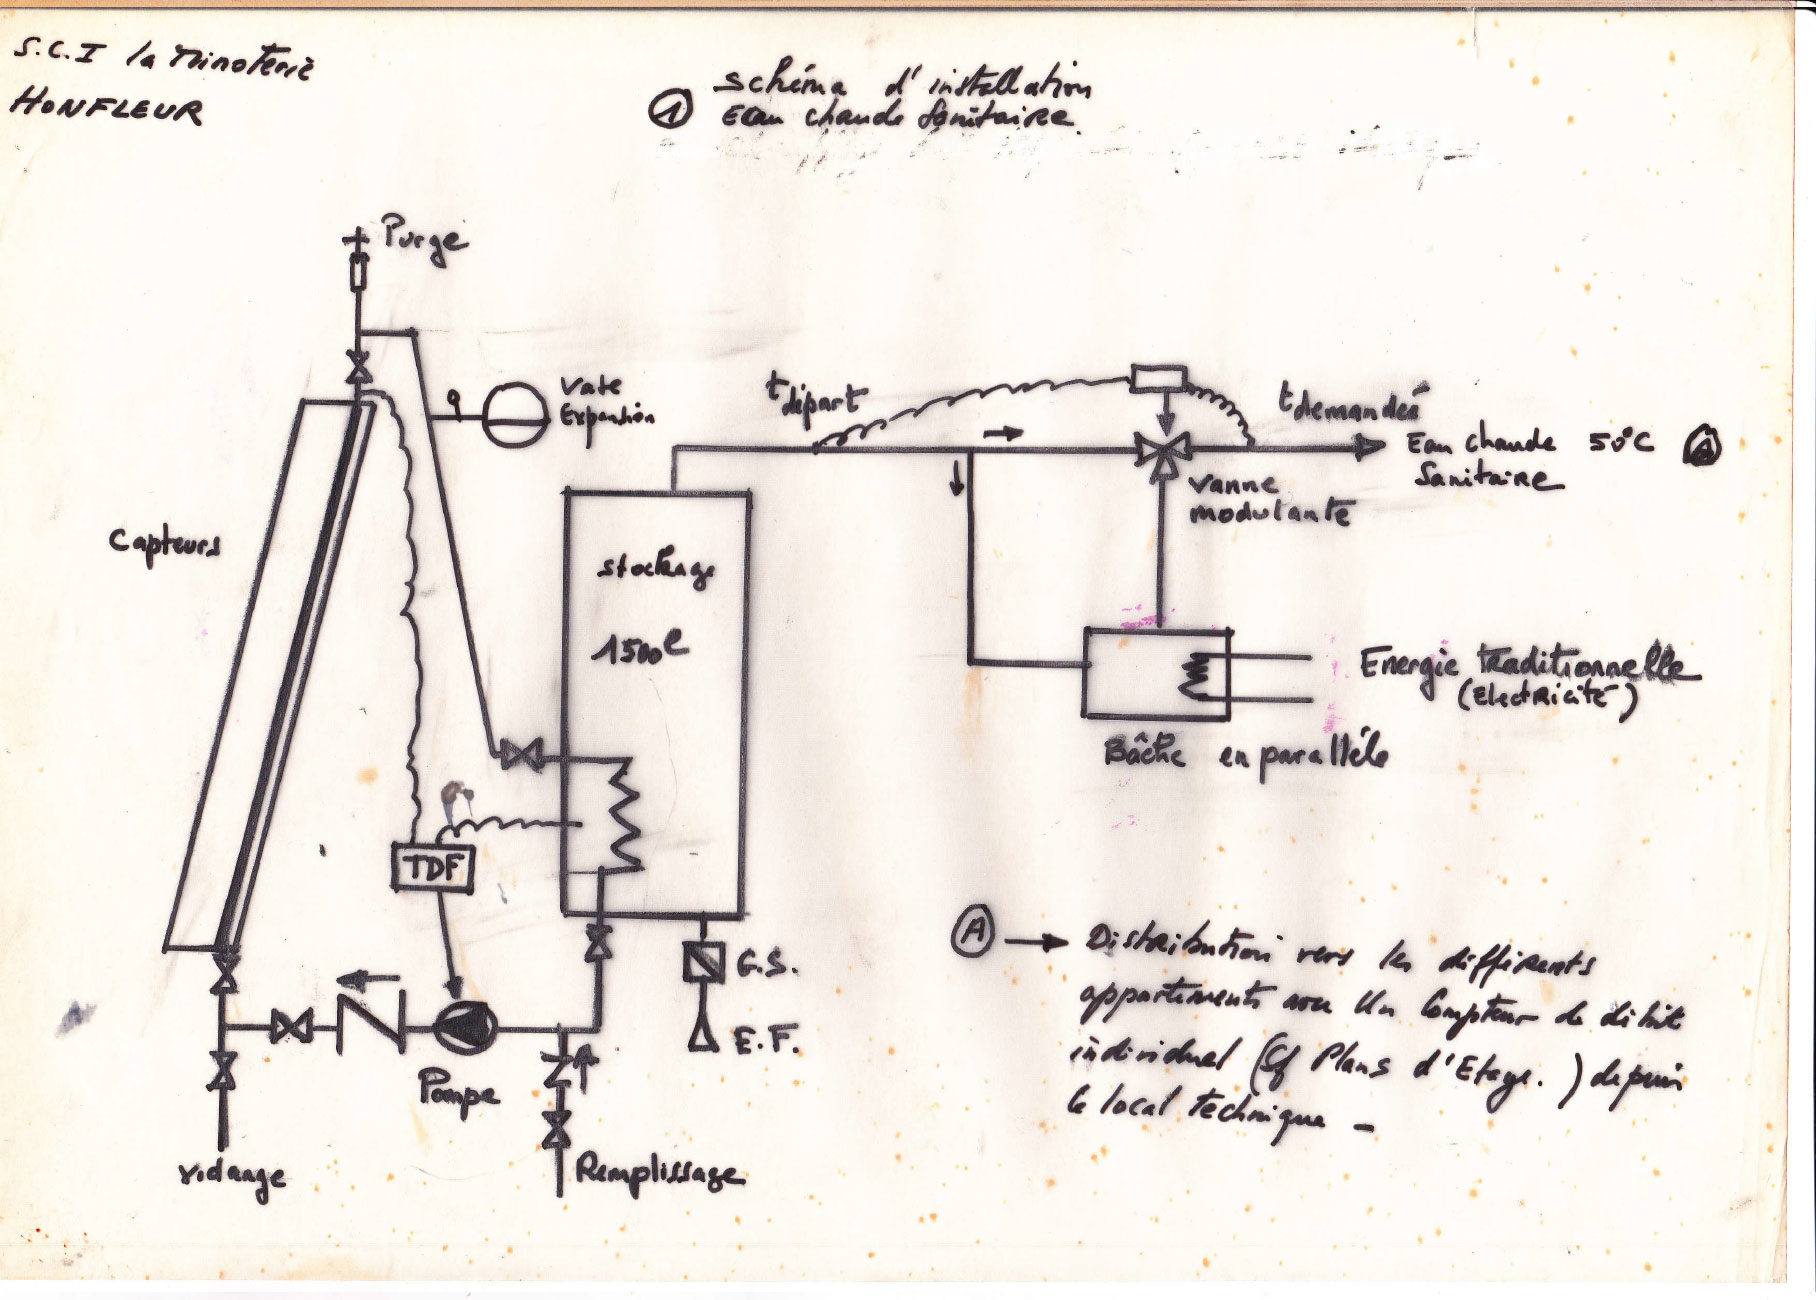 S.C.I la Minoterie
HONFLEUR
① Schéma d'installation
Eau chaude Sanitaire
Purge
Vase
Expansion
t départ
t demandée
Eau chaude 50°C Ⓐ
Sanitaire
vanne
modulante
Capteurs
stockage
1500 l
Energie traditionnelle
(Electricité)
Bâche en parallèle
TDF
G.S.
E.F.
Pompe
vidange
Remplissage
Ⓐ → Distribution vers les différents
appartements avec Un Compteur de débit
individuel (Cf Plans d'Etage.) depuis
le local technique -